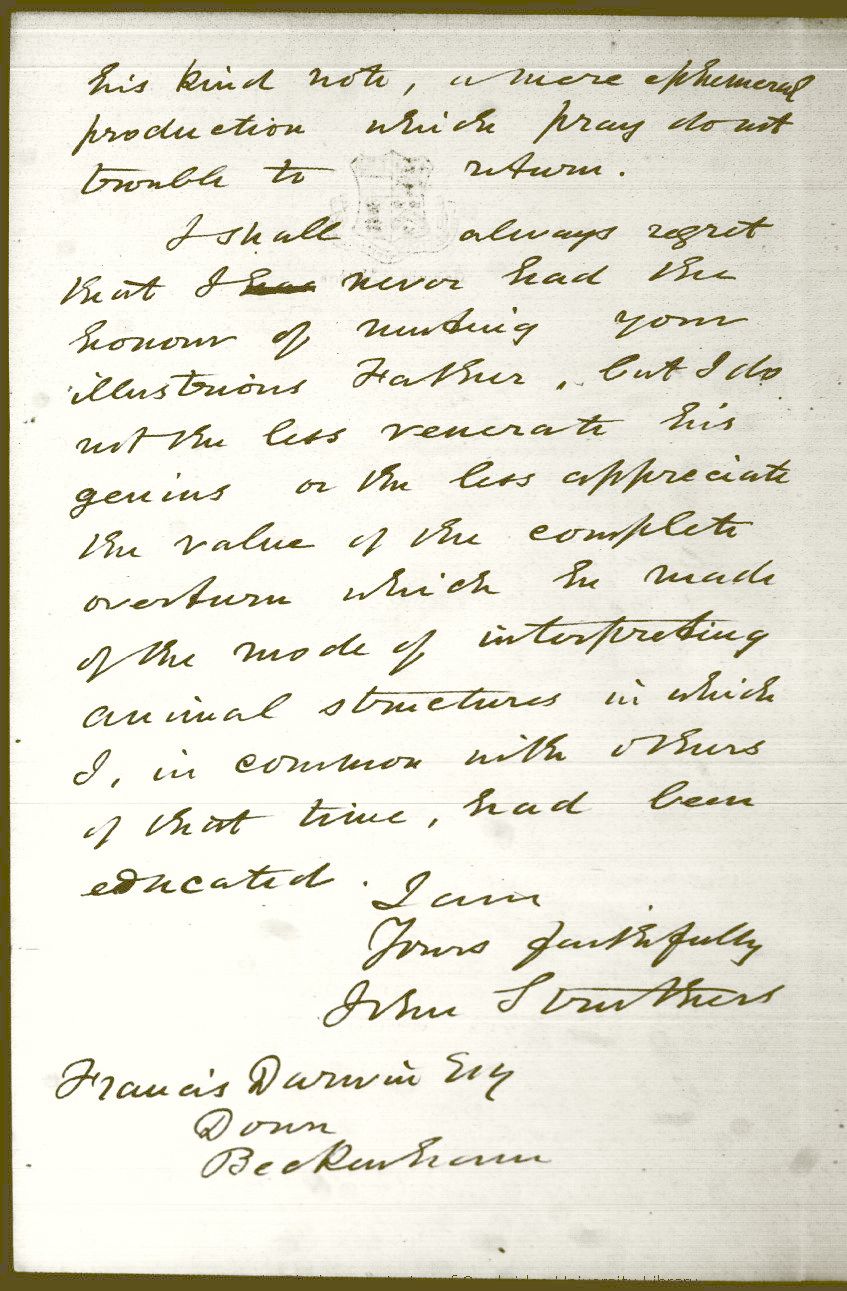 his kind note, a mere ephemeral
production which pray do not
trouble to return.
I shall always regret
that I never had the
honour of meeting your
illustrious Father, but I do
not the less venerate his
genius or the less appreciate
the value of the complete
overturn which he made
of the mode of interpreting
animal structures in which
I, in common with others
of that time, had been
educated.
I am
Yours faithfully
John Struthers
Francis Darwin Esq
Down
Beckenham